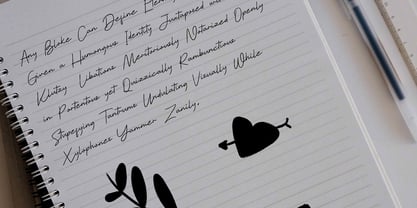 Any Bloke Can Define
Given a Humongous Identity Juxtaposed and
Klutzy Libations Meritoriously Notarized Openly
in Portentous yet Quizzically Rambunctious
Stupefying Tantrums Undulating Visually While
Xylophones Yammer Zanily.